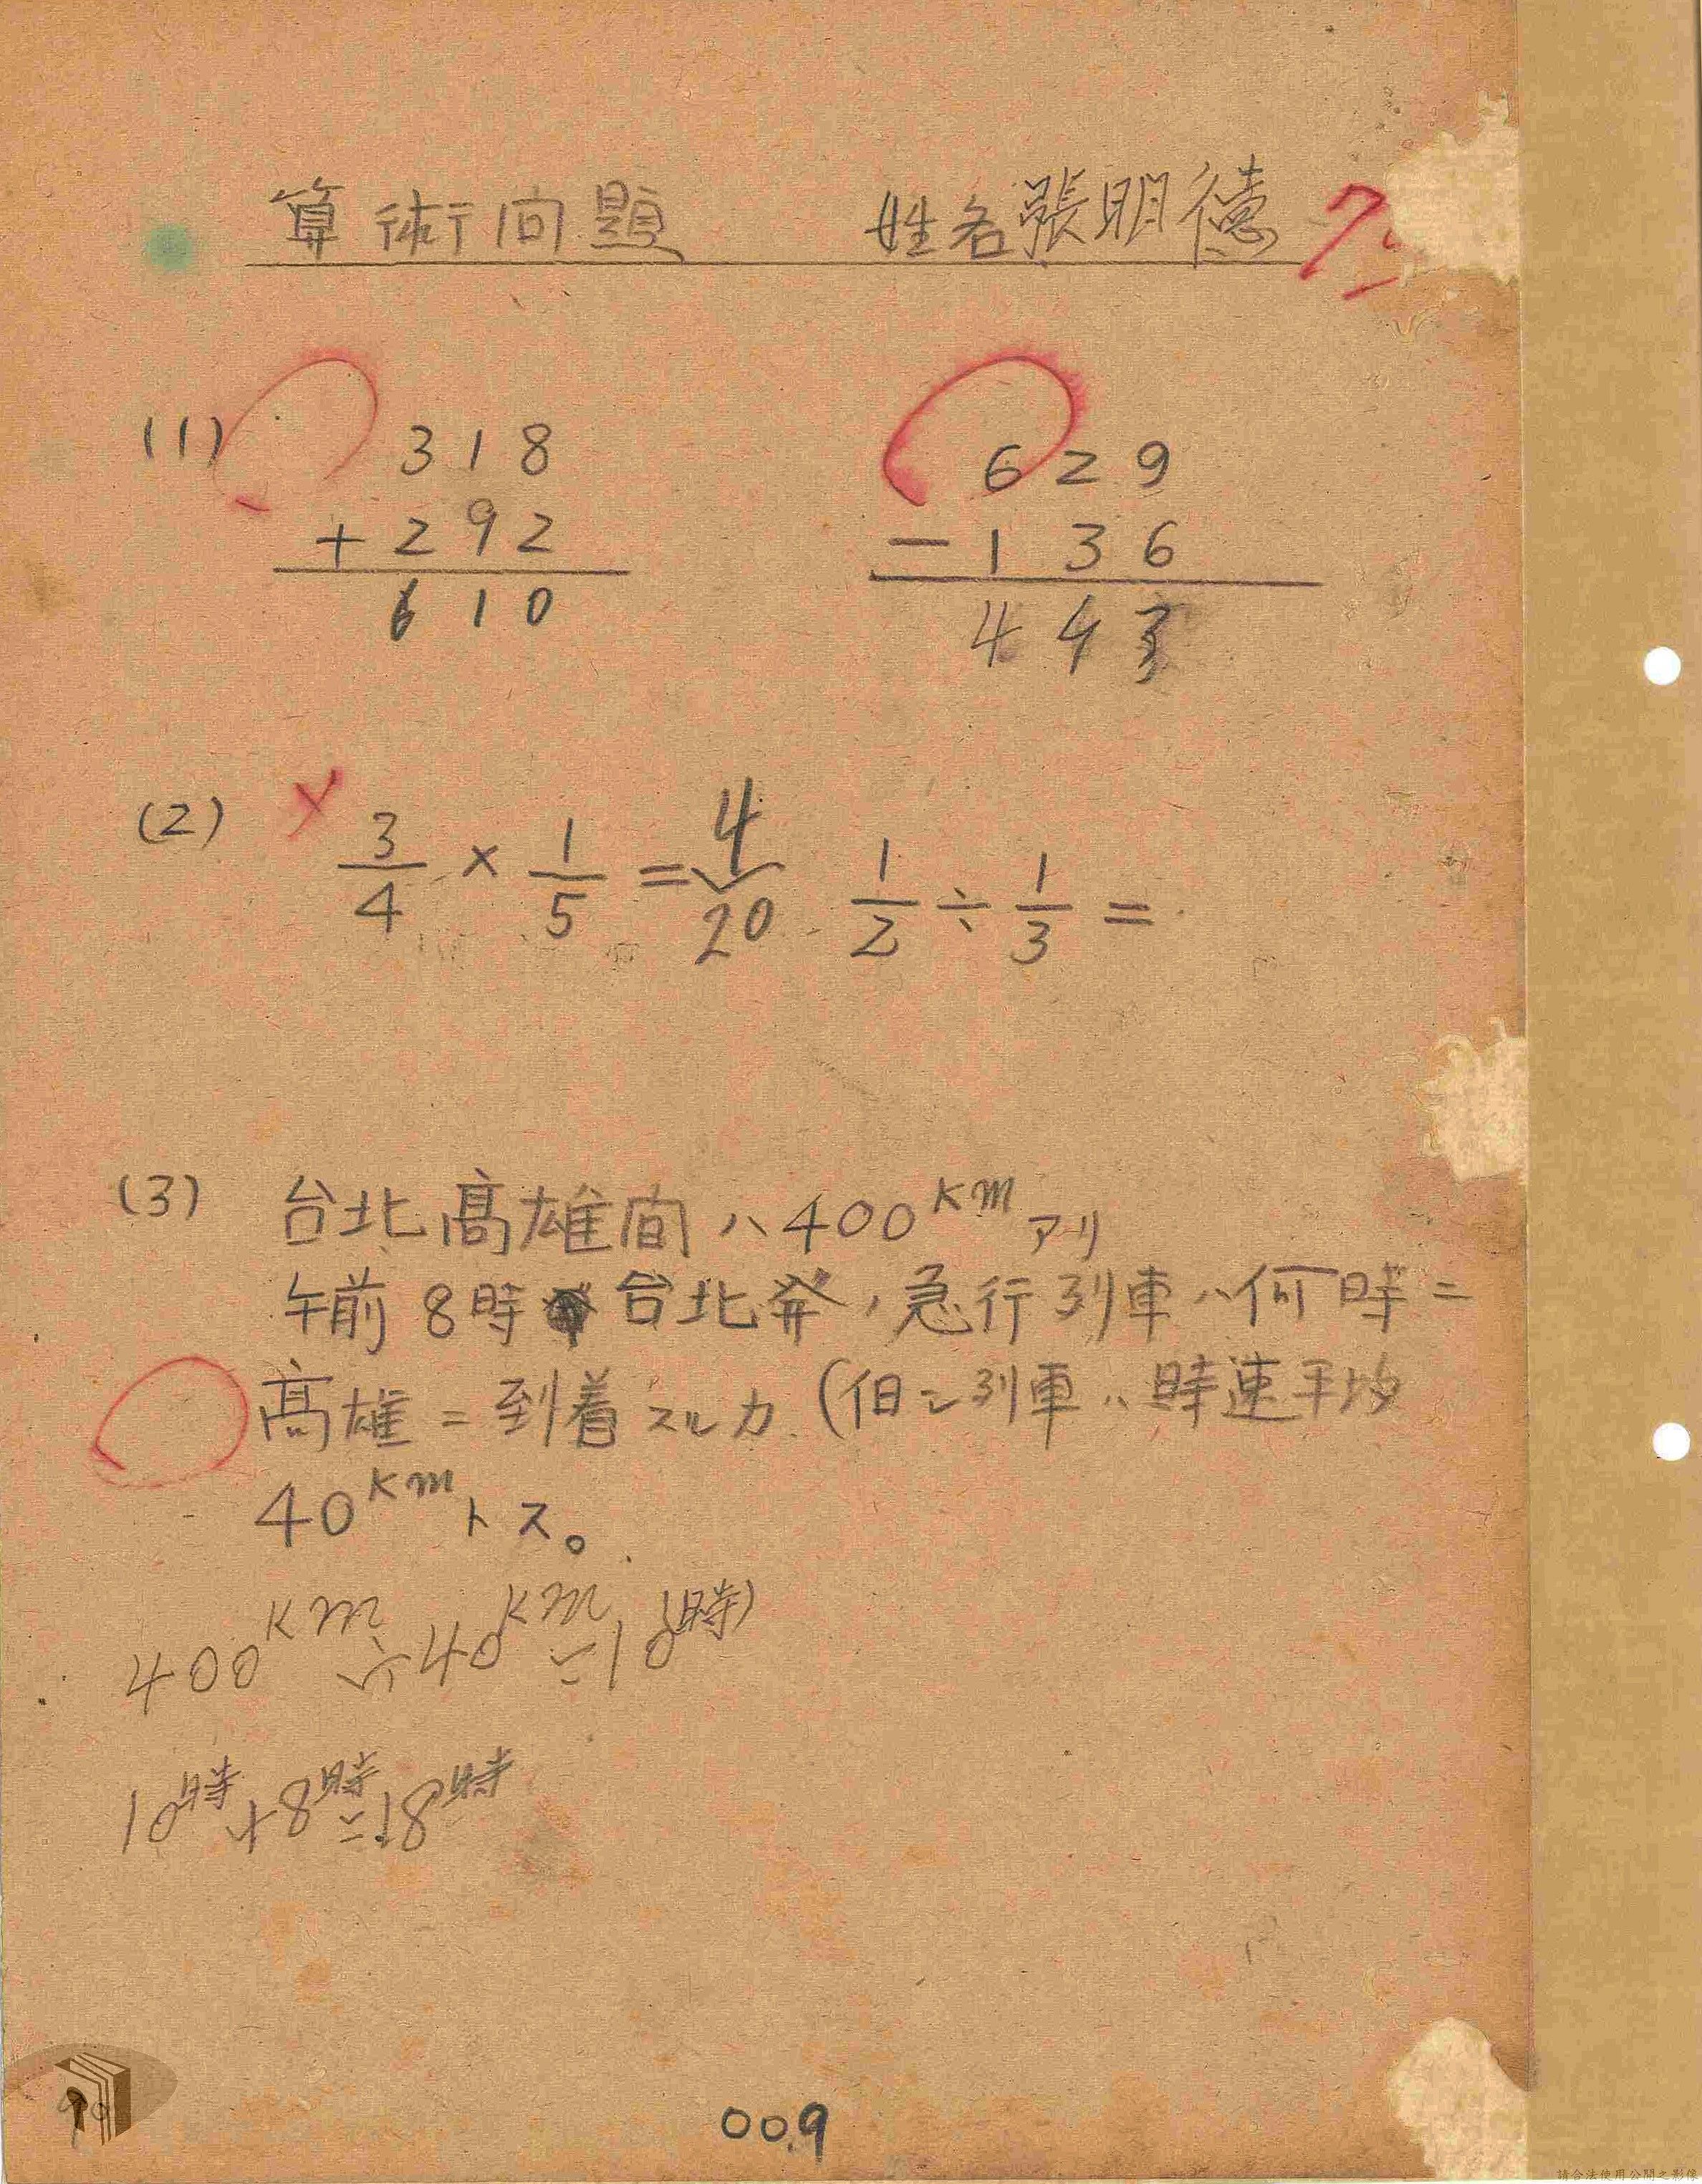 算術问題 姓名 張明德
(1) 318 629
+292 -136
610 443
(2) 3/4 × 1/5 = 4/20 1/2 ÷ 1/3 =
(3) 台北高雄间ハ400Kmアリ
午前8時台北発ノ急行列車ハ何時ニ
高雄ニ到着スルカ (但シ列車ハ時速平均
40Kmトス。
400Km÷40Km=10(時)
10時+8時=18時
009
請合法使用公開之影像